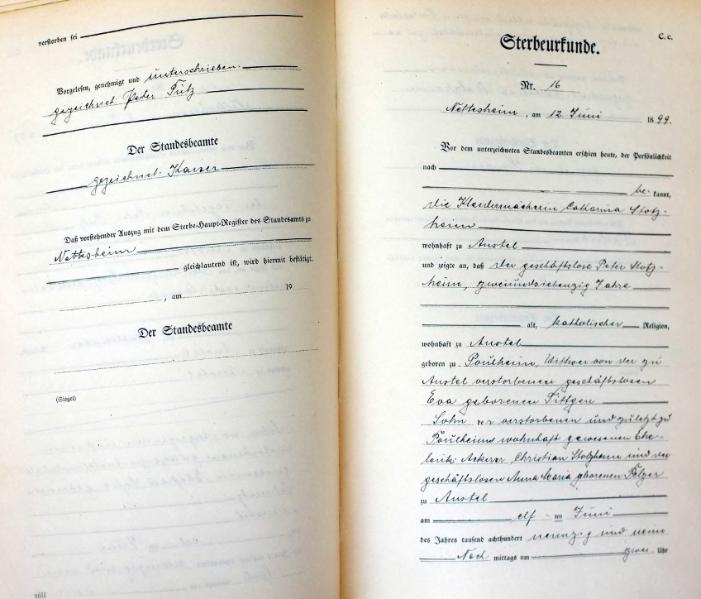 verstorben sei
Vorgelesen, genehmigt und unterschrieben.
gezeichnet Peter Pütz
Der Standesbeamte
gezeichnet. Kaiser
Daß vorstehender Auszug mit dem Sterbe-Haupt-Register des Standesamts zu
Nettesheim
gleichlautend ist, wird hiermit bestätigt.
, am 19
Der Standesbeamte
(Siegel)
C. c.
Sterbeurkunde.
Nr. 16
Nettesheim, am 12. Juni 1899.
Vor dem unterzeichneten Standesbeamten erschien heute, der Persönlichkeit
nach
be- kannt,
die Kleidermacherin Catharina Stolz-
heim
wohnhaft zu Anstel
und zeigte an, daß der geschäftslose Peter Stolz-
heim, zweiundsiebenzig Jahre
alt, katholischer Religion,
wohnhaft zu Anstel
geboren zu Poulheim, Wittwer von der zu
Anstel verstorbenen geschäftslosen
Eva geborenen Sittgen
Sohn der verstorbenen und zuletzt zu
Poulheim wohnhaft gewesenen Ehe-
leute Ackerer Christian Stolzheim und der
geschäftslosen Anna Maria geborenen
zu Anstel
am elf ten Juni
des Jahres tausend achthundert neunzig und neun
Nach mittags um zwei Uhr